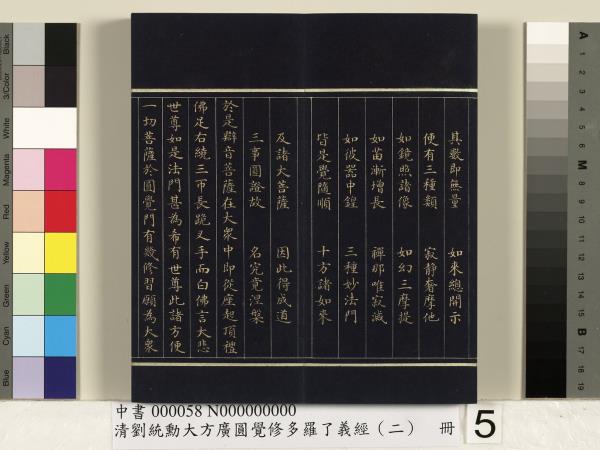 其數即無量 如來總開示
便有三種類 寂靜奢摩他
如鏡照諸像 如幻三摩提
如苗漸增長 禪那唯寂滅
如彼器中鍠 三種妙法門
皆是覺隨順 十方諸如來
及諸大菩薩 因此得成道
三事圓證故 名究竟涅槃
於是辯音菩薩在大眾中即從座起頂禮
佛足右繞三帀長跪叉手而白佛言大悲
世尊如是法門甚為希有世尊此諸方便
一切菩薩於圓覺門有幾修習願為大眾
中書 000058 N000000000
清劉統勳大方廣圓覺修多羅了義經(二) 冊 5
Black
3/Color
White
Magenta
Red
Yellow
Green
Cyan
Blue
A
1
2
3
4
5
6
M
8
9
10
11
12
13
14
15
B
17
18
19